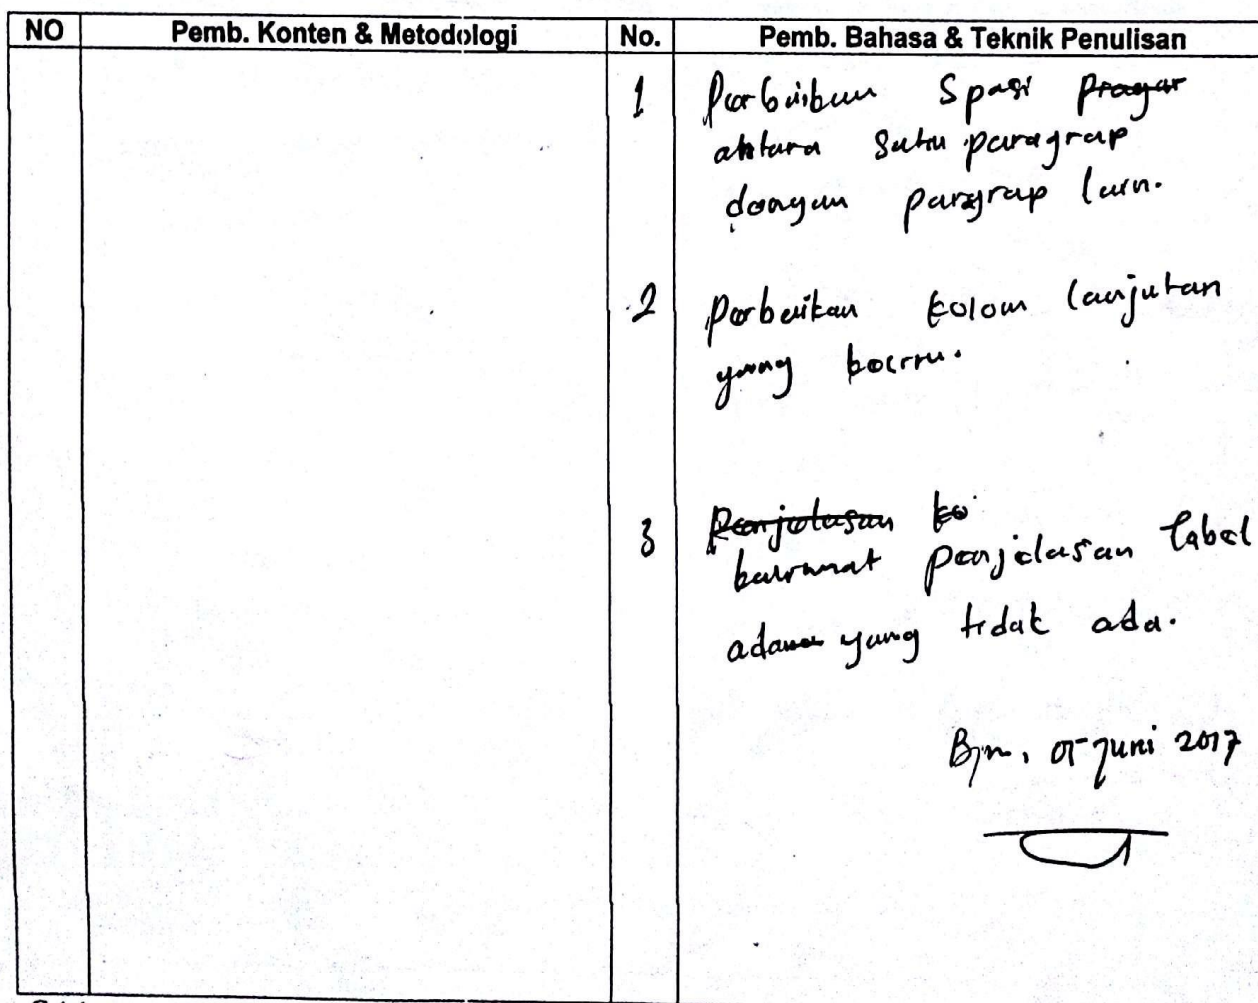 NO Pemb. Konten & Metodologi No. Pemb. Bahasa & Teknik Penulisan
1 Perbaikan Spasi
antara satu paragrap
dengan pargrap lain.
2 Perbaikan kolom lanjutan
yang
3 Penjelasan ke
penjelasan tabel
ada yang tidak ada.
Bjm, 05 Juni 2017